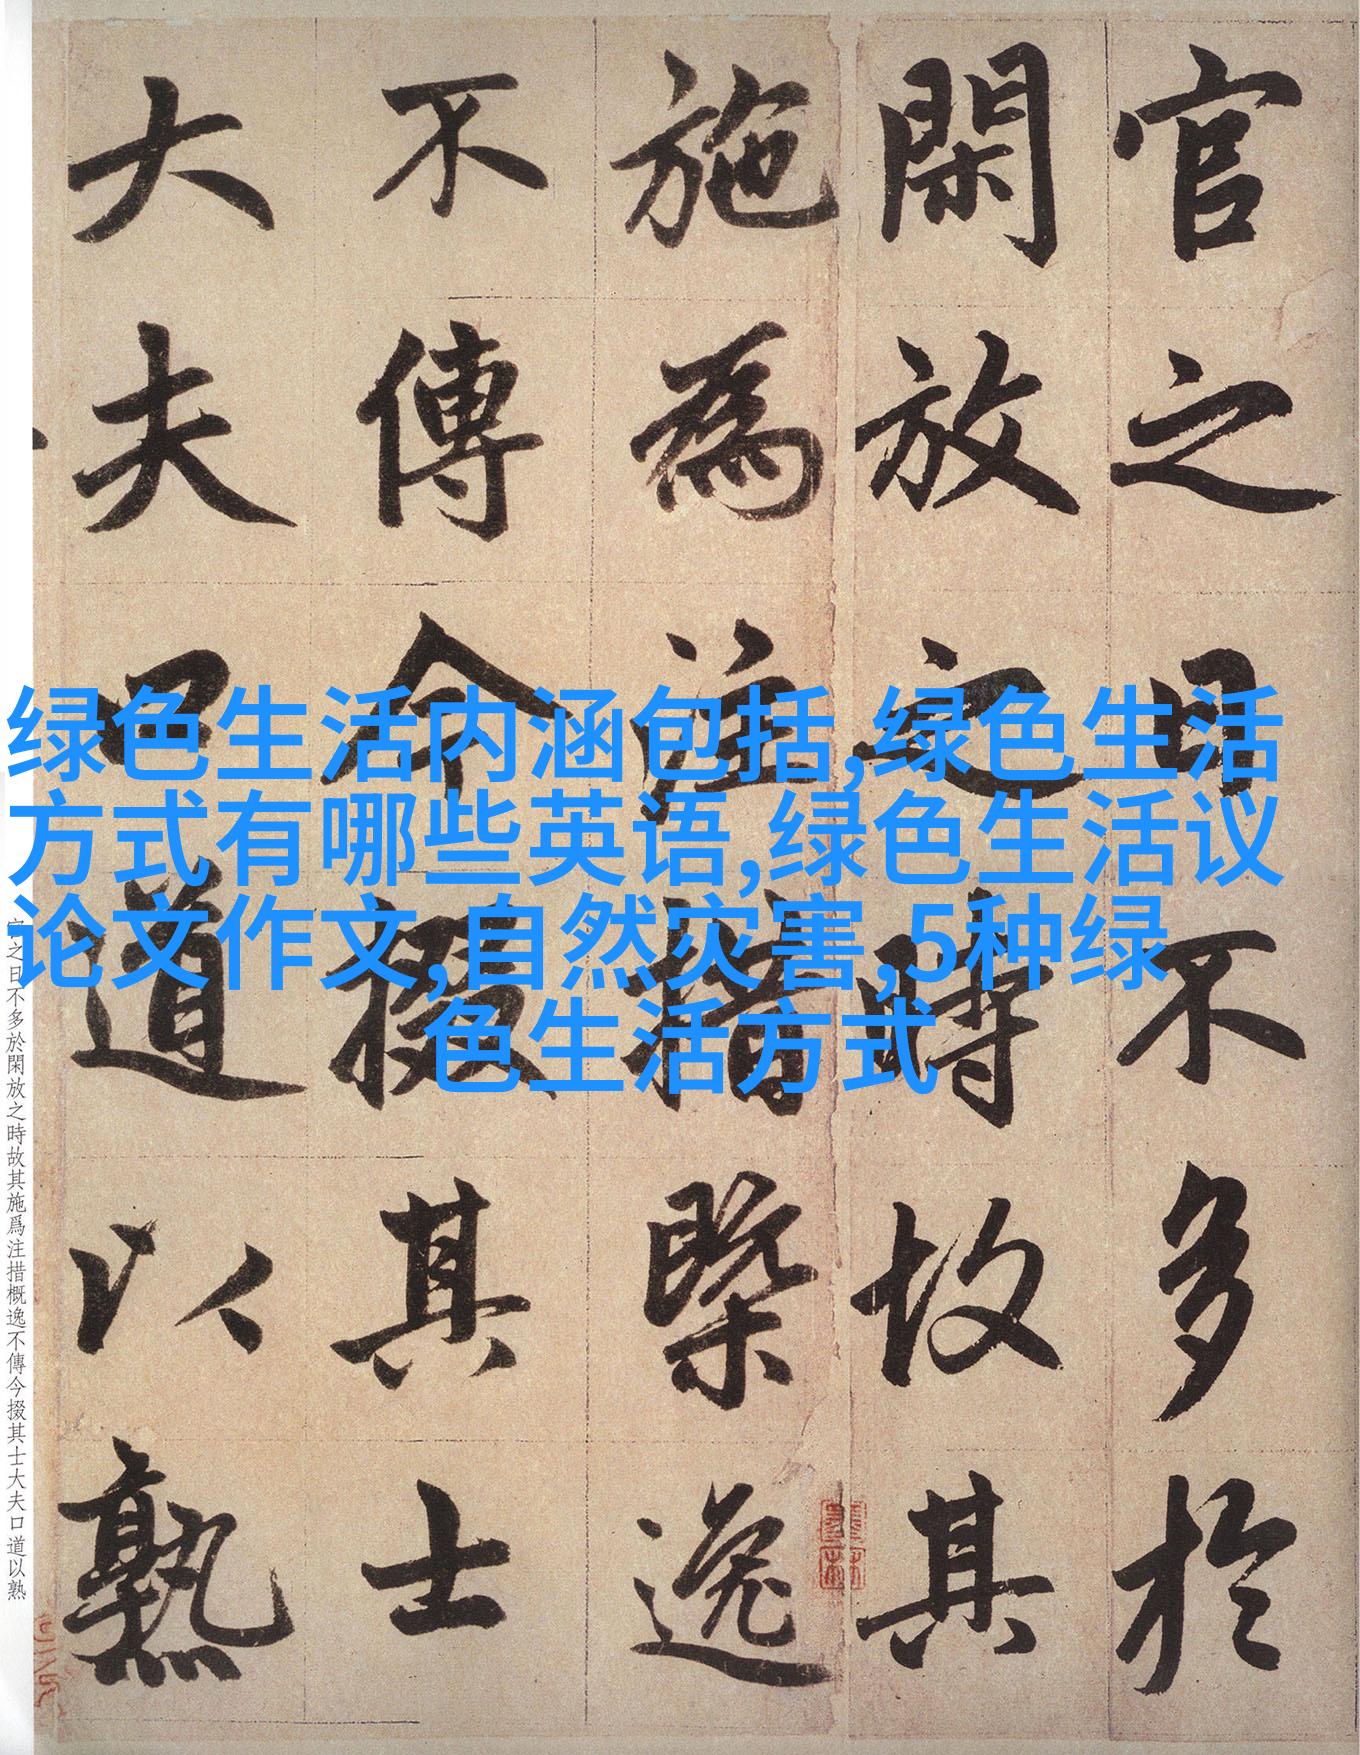 官之日不多於
閑放之時故其
施為注措槩逸
不傳今掇其士
大夫口道以熟
绿色生活内涵包括,绿色生活
方式有哪些英语,绿色生活议
论文作文,自然灾害,5种绿
色生活方式
官之日不多於閑放之時故其施爲注措概逸不傳今掇其士大夫口道以熟